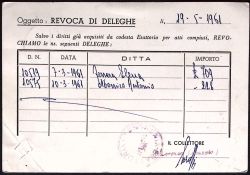 Oggetto: REVOCA DI DELEGHE li, 19-5-1961
Salvo i diritti già requisiti da codesta Esattoria per atti compiuti, REVO-
CHIAMO le ns. seguenti DELEGHE:
D. N. DATA DITTA IMPORTO
10519 7-3-1961 £ 709
10575 10-3-1961 Antonio
IL COLLETTORE